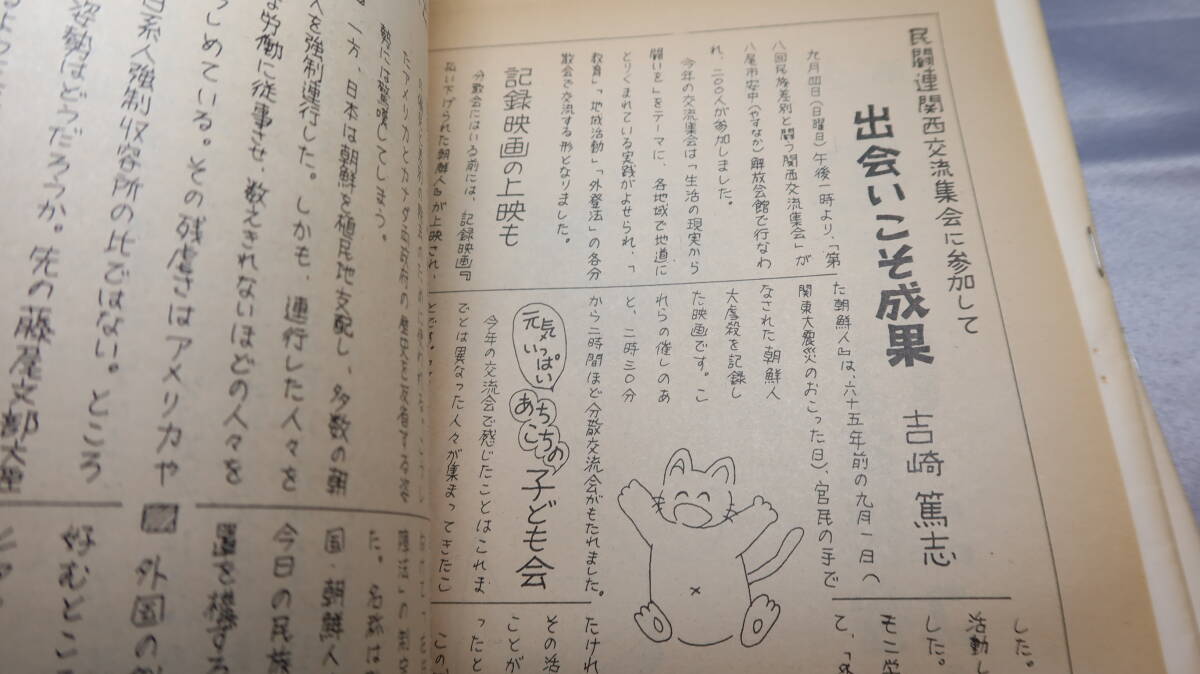 民闘連関西交流集会に参加して
出会いこそ成果
吉崎篤志
九月四日(日曜日)午後一時より、「第
八回民族差別と闘う関西交流集会」が
八尾市安中(やすなか)解放会館で行なわ
れ、二〇〇人が参加しました。
今年の交流集会は「生活の現実から
闘いを」をテーマに、各地域で地道に
とりくまれている実践がよせられ、「
教育」「地域活動」「外登法」の各分
散会で交流する形となりました。
記録映画の上映も
分散会にはいる前には、記録映画『
払い下げられた朝鮮人』が上映され、
た朝鮮人』は、六十五年前の九月一日(
関東大震災のおこった日)、官民の手で
なされた朝鮮人
大虐殺を記録し
た映画です。こ
れらの催しのあ
と、二時三〇分
から二時間ほど分散交流会がもたれました。
元気いっぱい
あちこちの
子ども会
今年の交流会で感じたことはこれま
でとは異なった人々が集まってきたこ
した。
活動し
した。
モニ学
て、「外
たけれ
その活
ことが
ったと
この、
たアメリカとカナダ
勢には驚嘆してしまう。
一方、日本は朝鮮を植民地支配し、多数の朝
人を強制連行した。しかも、連行した人々を
な労働に従事させ、数えきれないほどの人々を
しめている。その残虐さはアメリカや
日系人強制収容所の比ではない。ところ
姿勢はどうだろうか。先の藤尾文部大臣
た。
国・朝鮮人
今日の民族
外国の
好むとこ